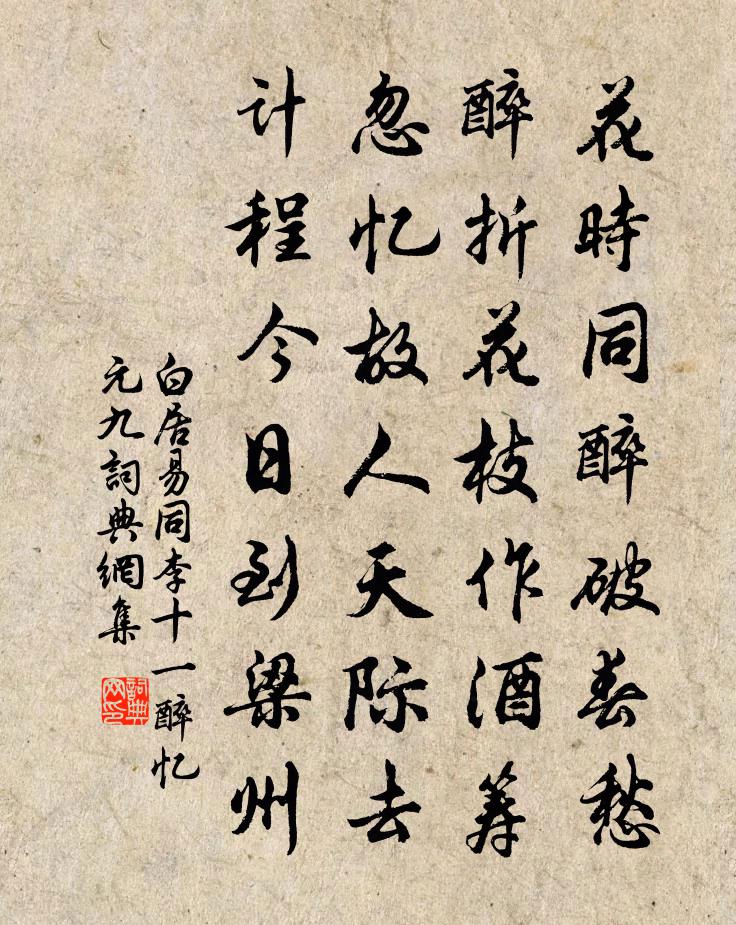 花時同醉破春愁
醉折花枝作酒筹
忽忆故人天际去
计程今日到梁州
白居易同李十一醉忆
元九詞典網集
詞典网印